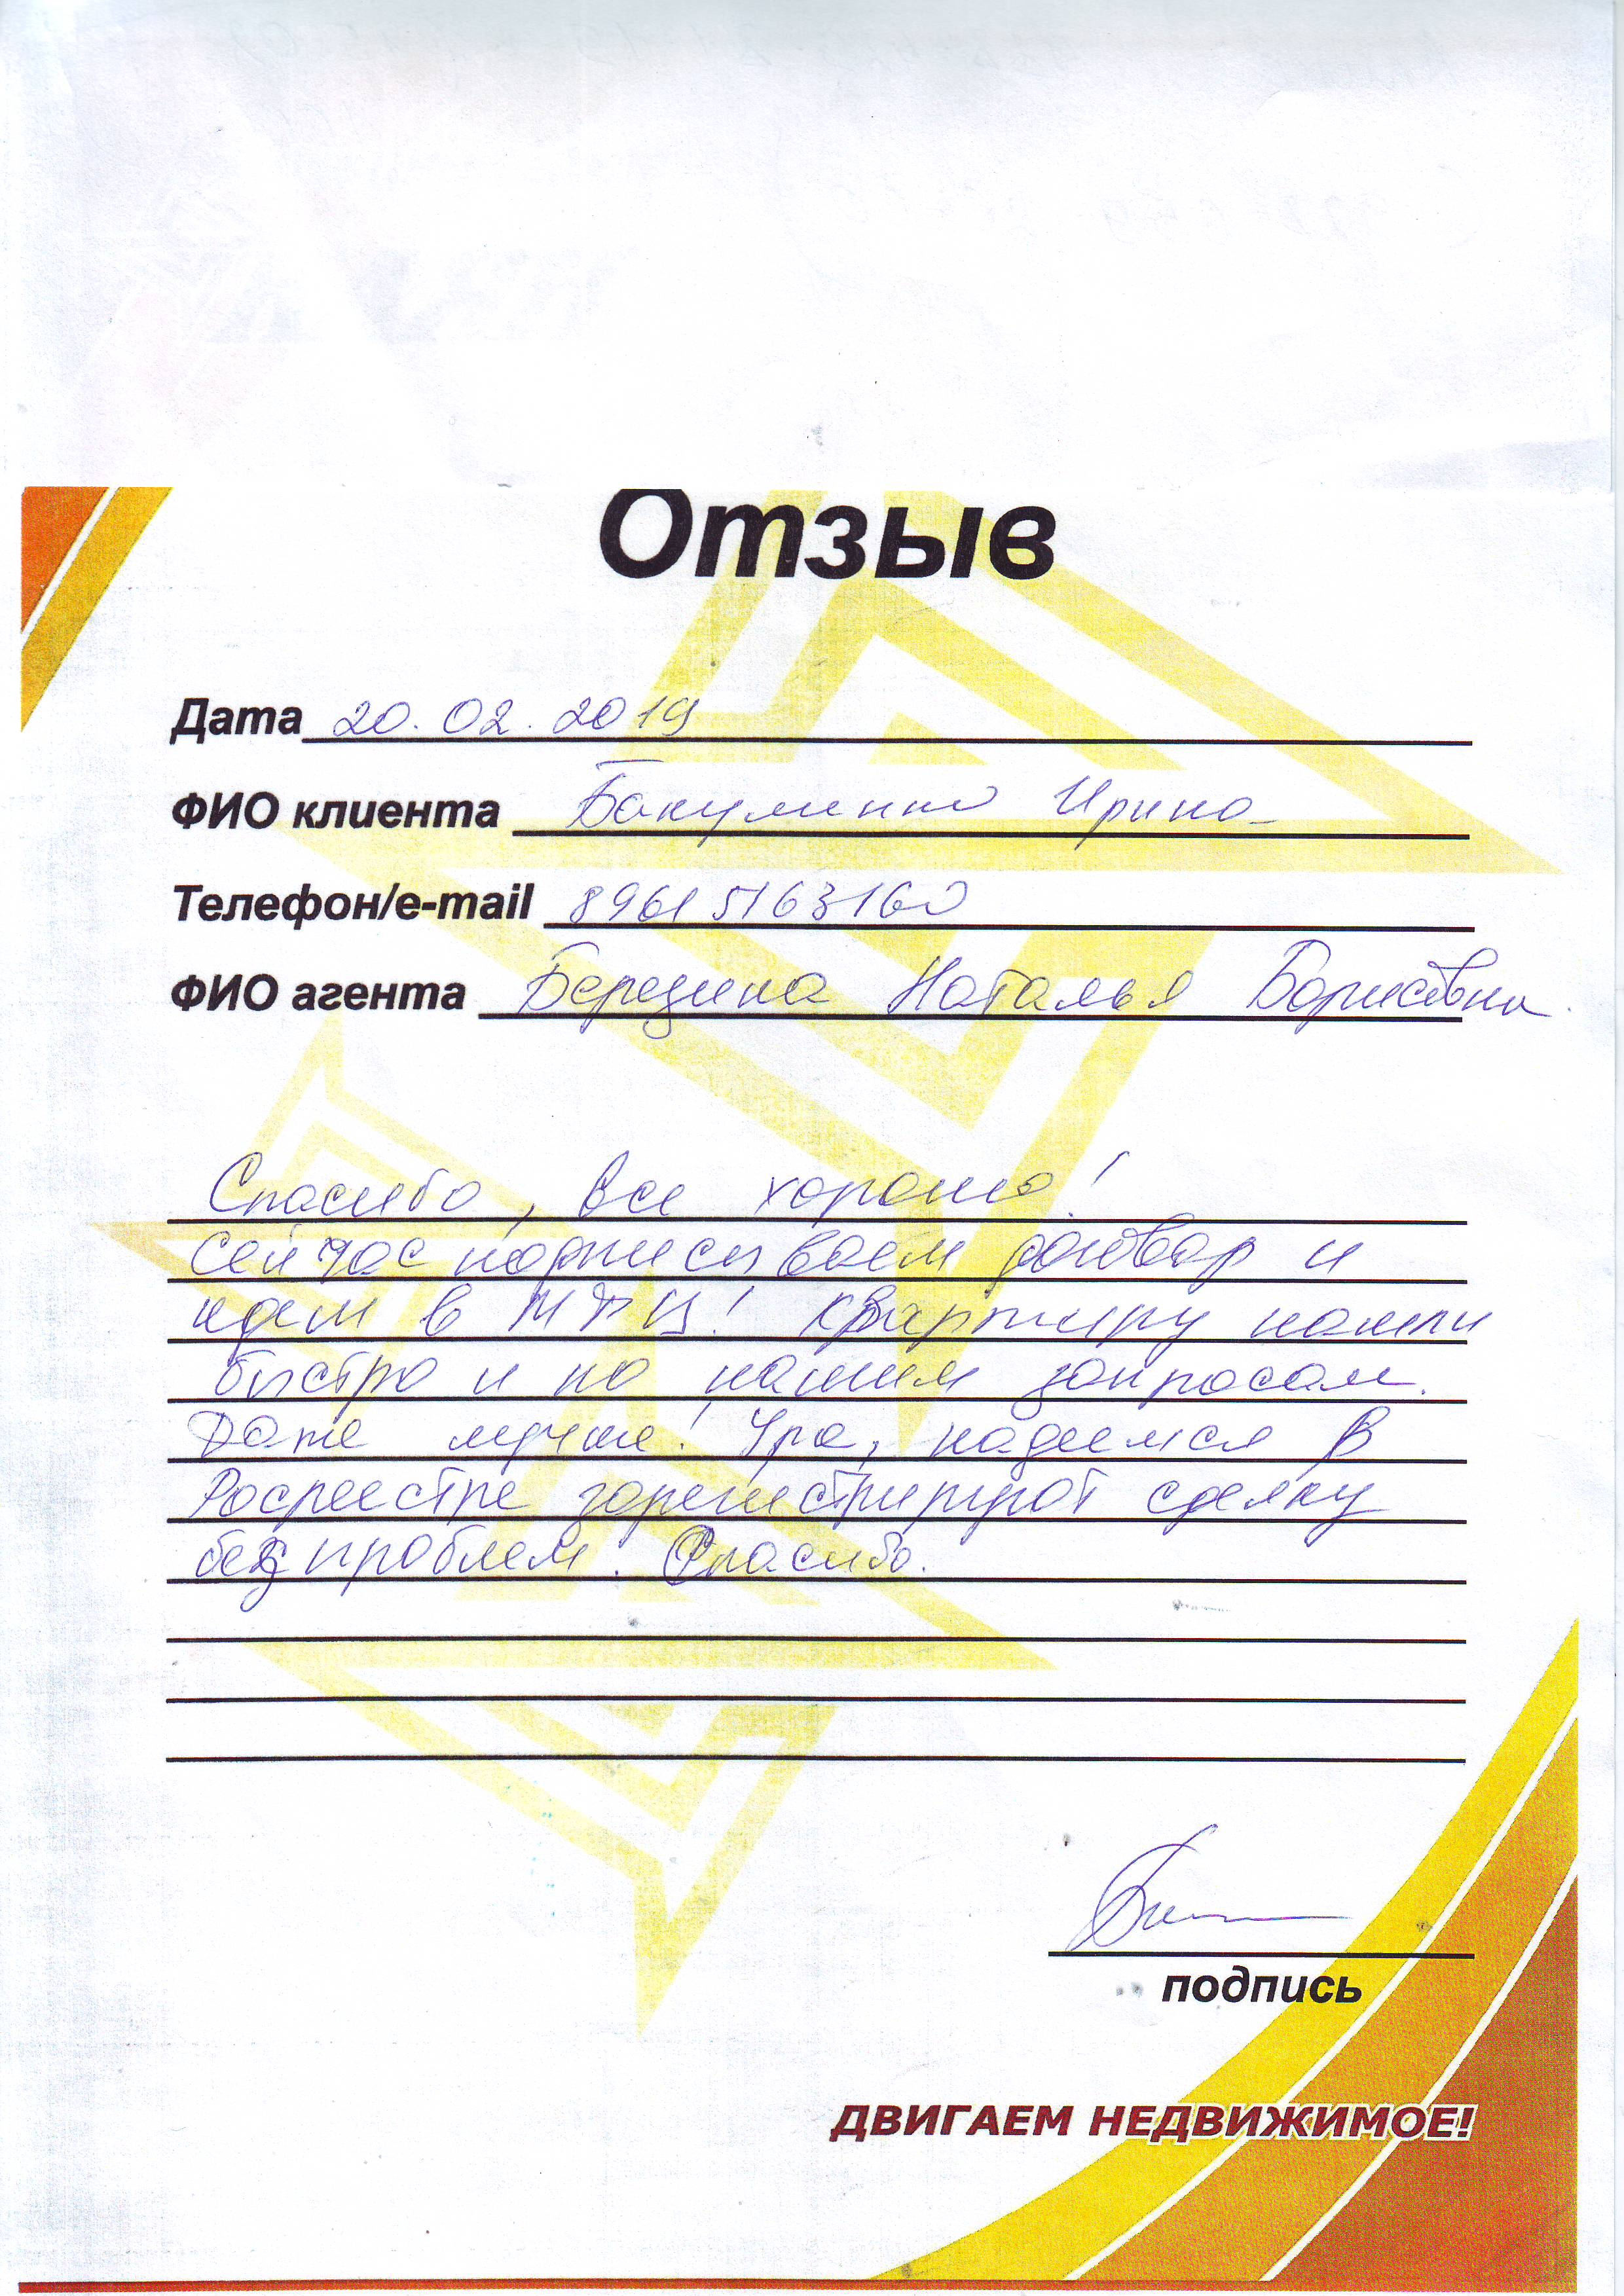 Отзыв
Дата 20.02.2019
ФИО клиента Бакуменко Ирина
Телефон/e-mail 89615163160
ФИО агента Березина Наталья Борисовна.
Спасибо, все хорошо!
Сейчас подписываем договор и
идем в МФЦ! Квартиру нашли
быстро и по нашим запросам.
Даже лучше! Ура, надеемся в
Росреестре зарегистрируют сделку
без проблем. Спасибо.
подпись
ДВИГАЕМ НЕДВИЖИМОЕ!